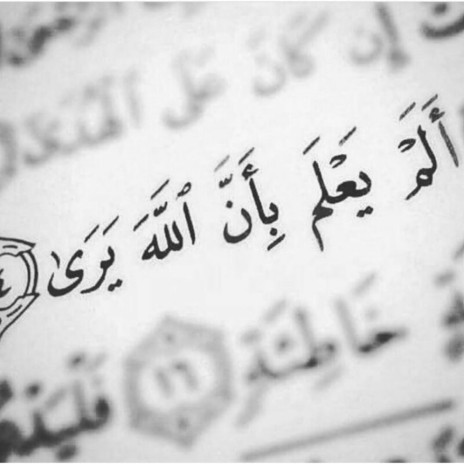 إِن كَانَ عَلَى ٱلْهُدَىٰ
أَلَمْ يَعْلَم بِأَنَّ ٱللَّهَ يَرَىٰ ٤
خَاطِئَةٍ ١٦ فَلْيَدْعُ